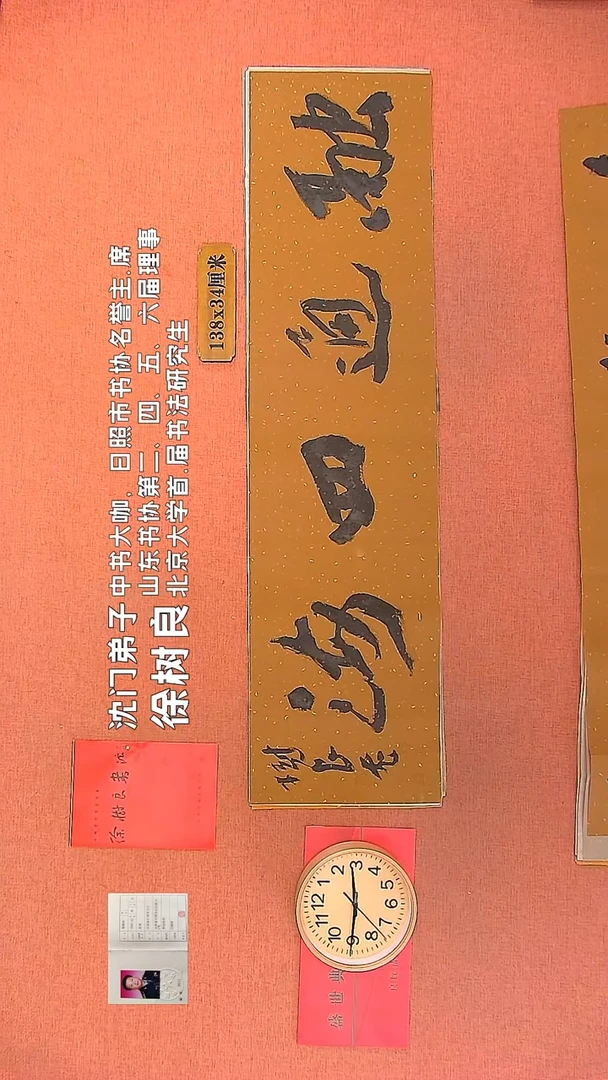 沈门弟子 中书大咖，日照市书协名誉主席
徐树良 山东书协第三、四、五、六届理事
北京大学首届书法研究生
138x34厘米
融通四海
树良书
徐树良书法
盛世典
12
1
2
3
4
5
6
7
8
9
10
11